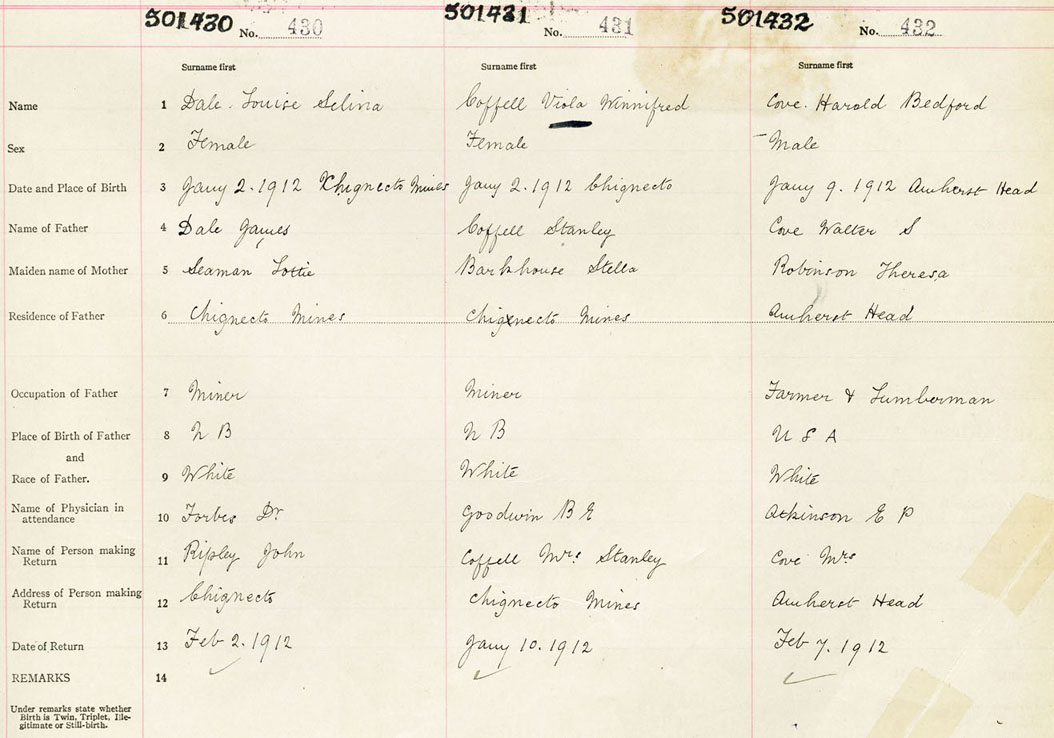 501430 No. 430 501431 No. 431 501432 No. 432
Surname first Surname first Surname first
Name 1 Dale. Louise Selina Coffell Viola Winnifred Cove. Harold Bedford
Sex 2 Female Female Male
Date and Place of Birth 3 Jany 2. 1912 Chignecto Mines Jany 2. 1912 Chignecto Jany 9. 1912 Amherst Head
Name of Father 4 Dale James Coffell Stanley Cove Walter S
Maiden name of Mother 5 Seaman Lottie Barkhouse Stella Robinson Theresa
Residence of Father 6 Chignecto Mines Chignecto Mines Amherst Head
Occupation of Father 7 Miner Miner Farmer & Lumberman
Place of Birth of Father 8 N B N B U S A
and
Race of Father. 9 White White White
Name of Physician in
attendance 10 Forbes Dr. Goodwin B E Atkinson E P
Name of Person making
Return 11 Ripley John Coffell Mrs. Stanley Cove Mrs
Address of Person making
Return 12 Chignecto Chignecto Mines Amherst Head
Date of Return 13 Feb 2. 1912 Jany 10. 1912 Feb 7. 1912
REMARKS 14
Under remarks state whether
Birth is Twin, Triplet, Ille-
gitimate or Still-birth.